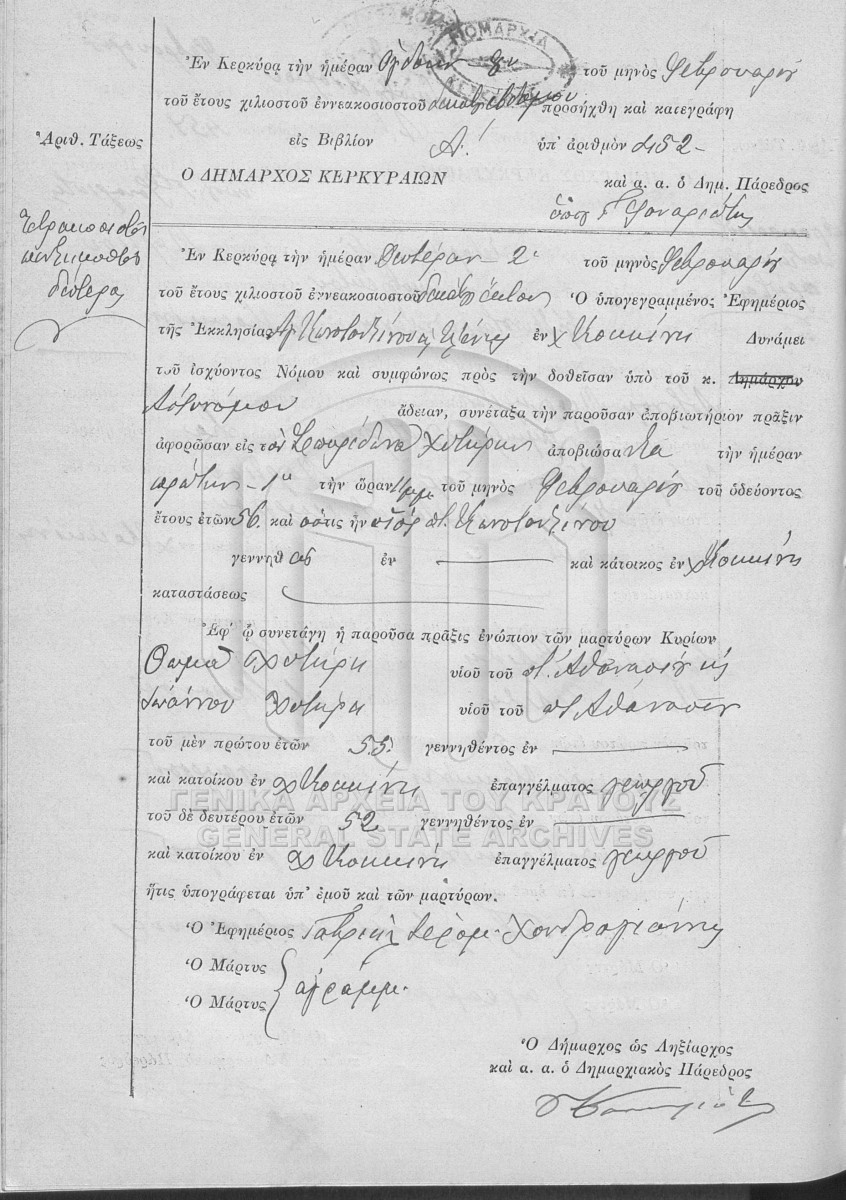 ΝΟΜΑΡΧΙΑ
Ἐν Κερκύρᾳ τὴν ἡμέραν Ὀγδόην 8ην τοῦ μηνὸς Φεβρουαρίου
τοῦ ἔτους χιλιοστοῦ ἐννεακοσιοστοῦ προσήχθη καὶ κατεγράφη
Ἀριθ. Τάξεως
εἰς Βιβλίον Α! ὑπ' ἀριθμὸν 452-
Ο ΔΗΜΑΡΧΟΣ ΚΕΡΚΥΡΑΙΩΝ
καὶ α. α. ὁ Δημ. Πάρεδρος
δεύτερα
Ἐν Κερκύρᾳ τὴν ἡμέραν Δευτέραν - 2 τοῦ μηνὸς Φεβρουαρίου
τοῦ ἔτους χιλιοστοῦ ἐννεακοσιοστοῦ δεκάτου ἕκτου Ὁ ὑπογεγραμμένος Ἐφημέριος
τῆς Ἐκκλησίας Ἁγ Κωνσταντίνου Ἑλένης ἐν χ Κοκκίνη Δυνάμει
τοῦ ἰσχύοντος Νόμου καὶ συμφώνως πρὸς τὴν δοθεῖσαν ὑπὸ τοῦ κ. Δημάρχου
Ἀστυνόμου ἄδειαν, συνέταξα τὴν παροῦσαν ἀποβιωτήριον πρᾶξιν
ἀφορῶσαν εἰς τὸν Σπυρίδωνα Χυτήρην ἀποβιώσαντα τὴν ἡμέραν
πρώτην - 1η τὴν ὥραν τοῦ μηνὸς Φεβρουαρίου τοῦ ὁδεύοντος
ἔτους ἐτῶν 56. καὶ ὅστις ἦν υἱὸς π. Κωνσταντίνου
γεννηθ εὶς ἐν καὶ κάτοικος ἐν χ Κοκκίνη
καταστάσεως
Ἐφ' ᾧ συνετάγη ἡ παροῦσα πρᾶξις ἐνώπιον τῶν μαρτύρων Κυρίων
Θωμᾶ Χυτήρη υἱοῦ τοῦ π. Ἀθανασίου κὶ
Ἰωάννου Χυτήρη υἱοῦ τοῦ π Ἀθανασίου
τοῦ μὲν πρώτου ἐτῶν 55. γεννηθέντος ἐν
καὶ κατοίκου ἐν χ Κοκκίνη ἐπαγγέλματος γεωργοῦ
ΓΕΝΙΚΑ ΑΡΧΕΙΑ ΤΟΥ ΚΡΑΤΟΥΣ
τοῦ δὲ δευτέρου ἐτῶν 52 γεννηθέντος ἐν
GENERAL STATE ARCHIVES
καὶ κατοίκου ἐν χ Κοκκίνη ἐπαγγέλματος γεωργοῦ
ἥτις ὑπογράφεται ὑπ' ἐμοῦ καὶ τῶν μαρτύρων.
Ὁ Ἐφημέριος Γαβριὴλ Ἱερομ. Χονδρογιάννης
Ὁ Μάρτυς
ἀγράμμ.
Ὁ Μάρτυς
Ὁ Δήμαρχος ὡς Ληξίαρχος
καὶ α. α. ὁ Δημαρχιακὸς Πάρεδρος